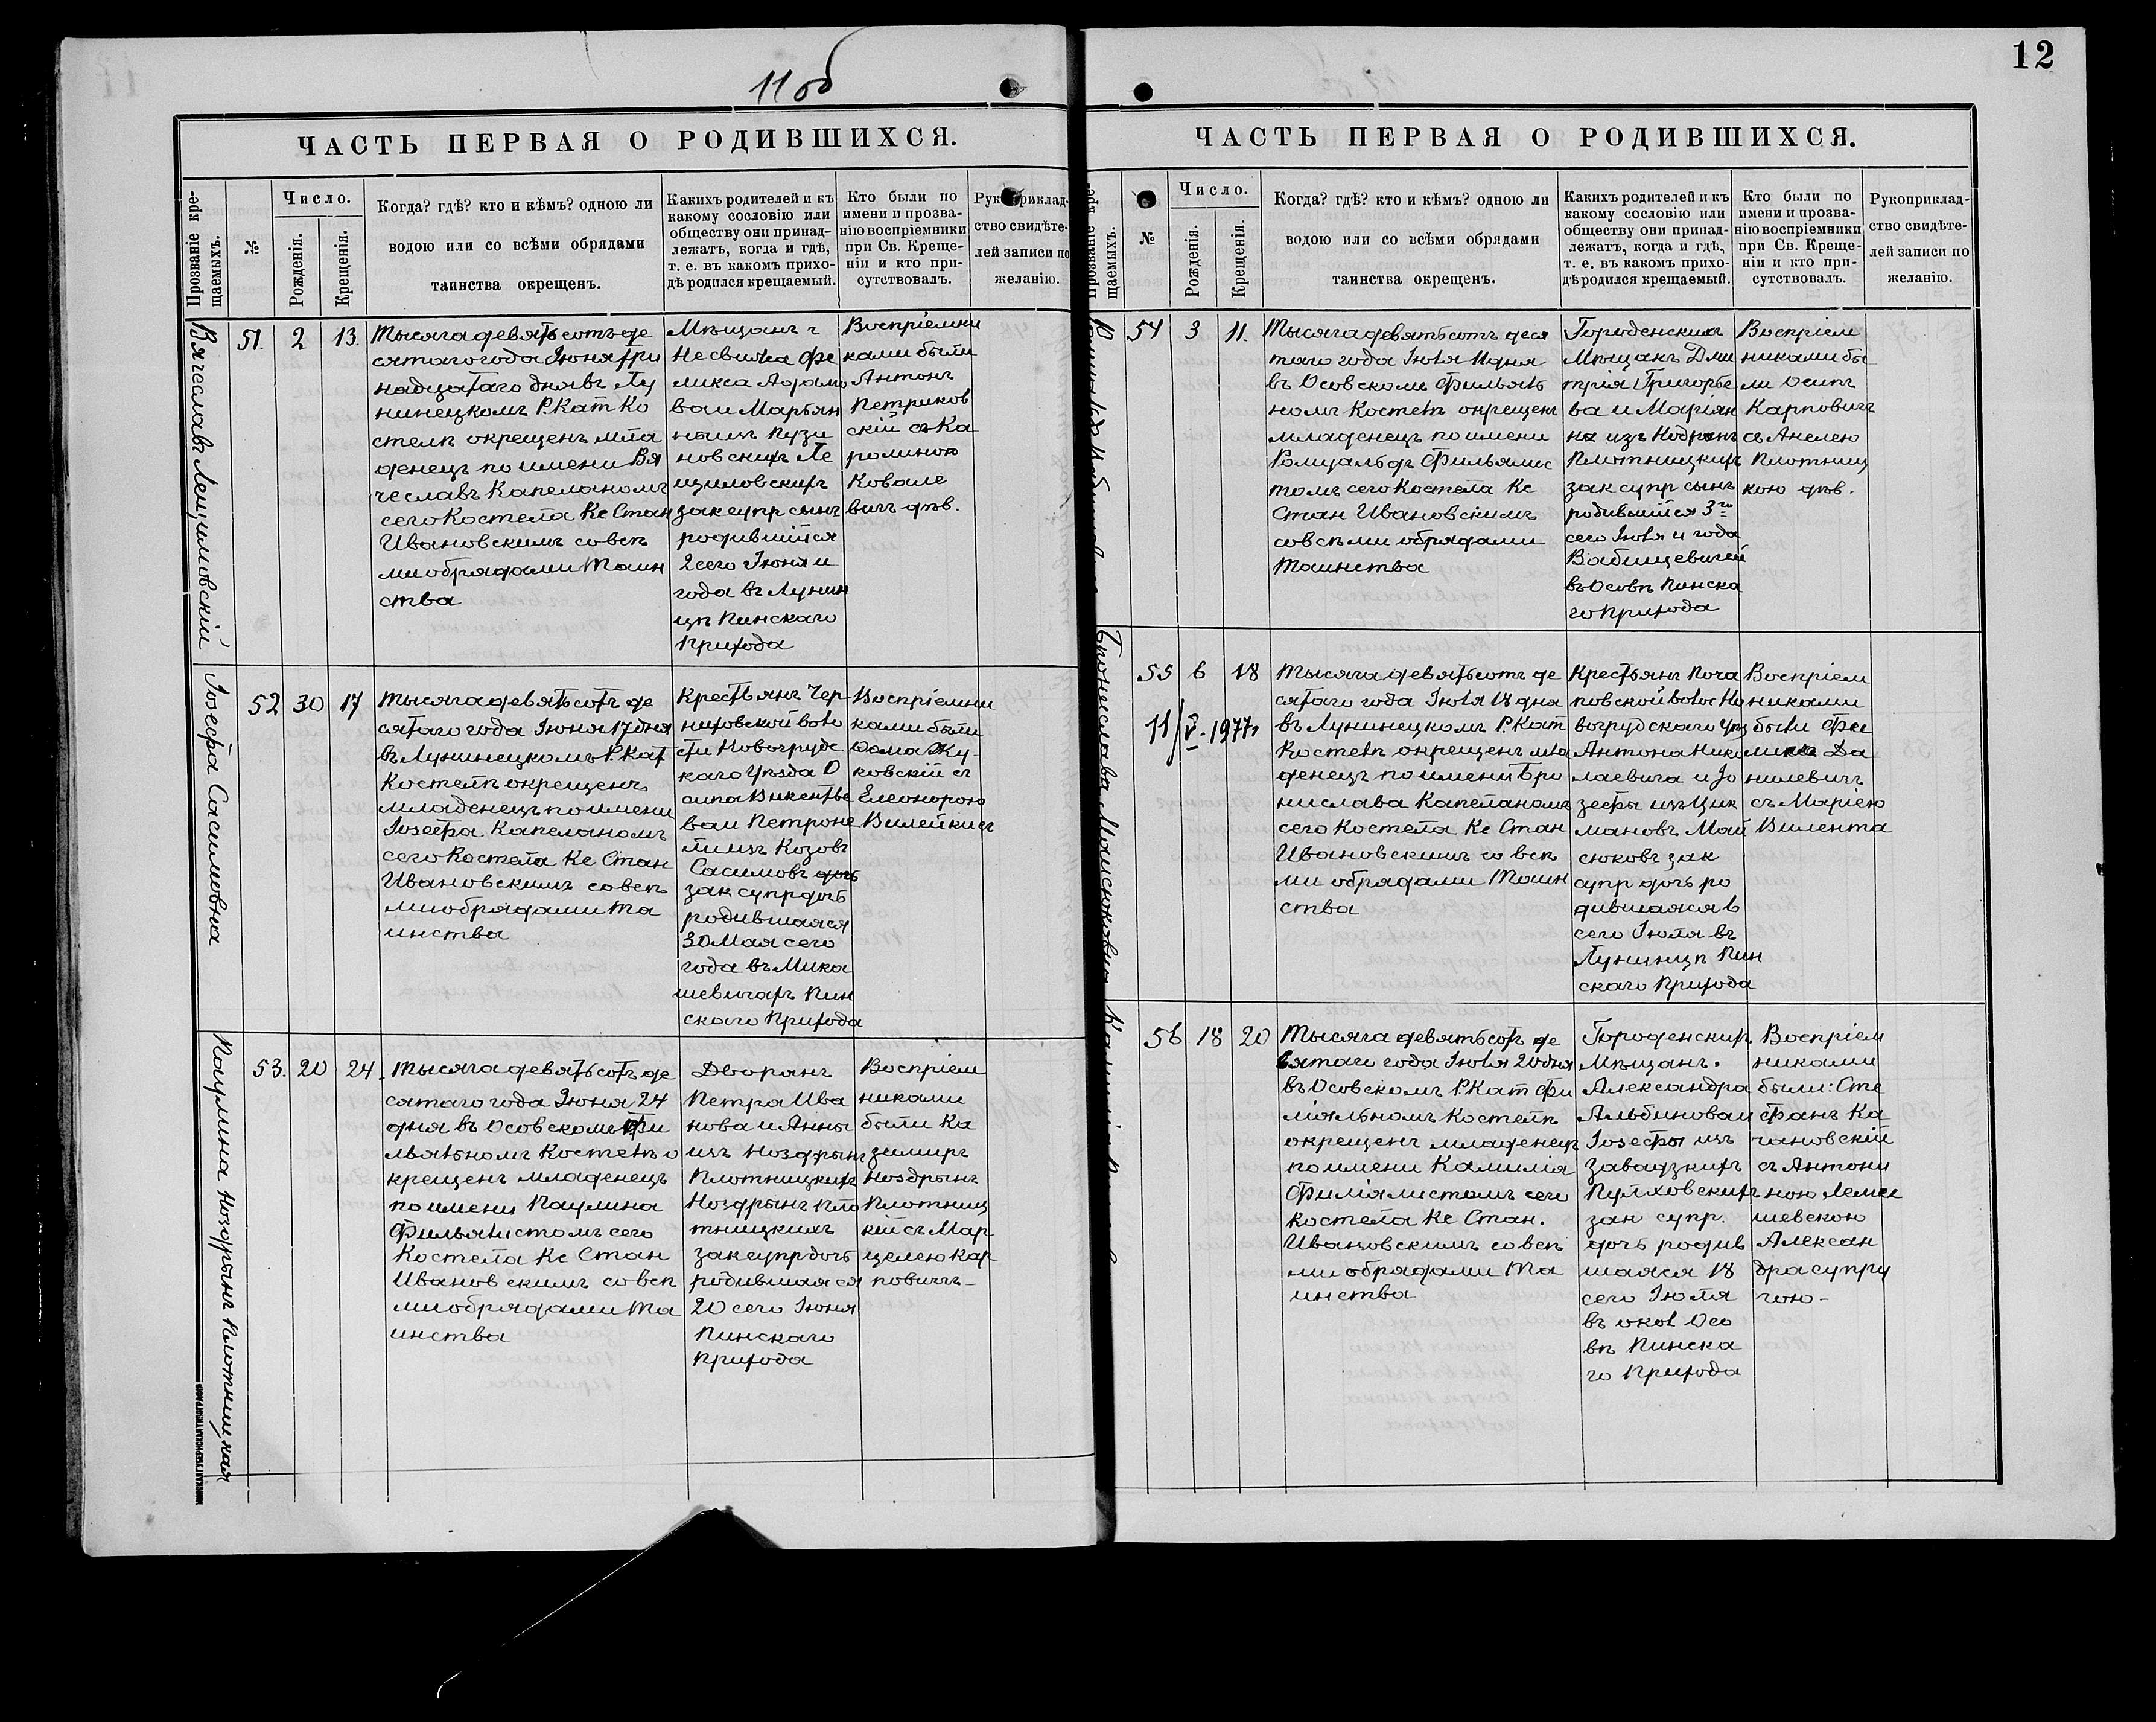 11 об
ЧАСТЬ ПЕРВАЯ О РОДИВШИХСЯ.
Прозваніе кре-
щаемыхъ.
№
Число.
Рожденія.
Крещенія.
Когда? гдѣ? кто и кѣмъ? одною ли
водою или со всѣми обрядами
таинства окрещенъ.
Какихъ родителей и къ
какому сословію или
обществу они принад-
лежатъ, когда и гдѣ,
т. е. въ какомъ прихо-
дѣ родился крещаемый.
Кто были по
имени и прозва-
нію воспріемники
при Св. Креще-
ніи и кто при-
сутствовалъ.
Рукоприклад-
ство свидѣте-
лей записи по
желанію.
Вячеславъ Лещиловскій
51.
2
13.
Тысяча девятьсотъ де
сятаго года Іюня три
надцатаго дня въ Лу
нинецкомъ Р. Кат Ко
стелѣ окрещенъ мла
денецъ по имени Вя
чеславъ Капеланомъ
сего Костела Кс Стан
Ивановскимъ со всѣ
ми обрядами Таин
ства
Мѣщанъ г
Несвижа Фе
ликса Адамо
ва и Марьян
ны изъ Пузи
новскихъ Ле
щиловскихъ
зак супр сынъ
родившійся
2 сего Іюня и
года въ Лунин
цѣ Пинскаго
Прихода
Воспріемни
ками были
Антонъ
Петриков
скій съ Ка
ролиною
Ковале
вичъ дѣв.
Іозефа Сасимовна
52
30
17
Тысяча девятьсотъ де
сятаго года Іюня 17 дня
въ Лунинецкомъ Р. Кат
Костелѣ окрещенъ
младенецъ по имени
Іозефа Капеланомъ
сего Костела Кс Стан
Ивановскимъ со всѣ
ми обрядами та
инства
Крестьянъ Чер
ниховской воло
сти Новогрудс
каго Уѣзда О
сипа Викентье
ва и Петроне
ли изъ Козовъ
Сасимовъ дочь
зак супр дочь
родившаяся
30 Мая сего
года въ Мика
шевичахъ Пин
скаго Прихода
Воспріемни
ками были
Фома Жу-
ковскій съ
Елеонорою
Вилейкисъ
Паулина Ноздрынъ Плотницкая
53.
20
24.
Тысяча девятьсотъ де
сятаго года Іюня 24
дня въ Осовскомъ Фи
льяльномъ Костелѣ о
крещенъ младенецъ
по имени Паулина
Фильялистомъ сего
Костела Кс Стан
Ивановскимъ со всѣ
ми обрядами та
инства
Дворянъ
Петра Ива
нова и Анны
изъ Ноздрынъ
Плотницкихъ
Ноздрынъ Пло
тницкихъ
зак супр дочь
родившаяся
20 сего Іюня
Пинскаго
Прихода
Воспріем
никами
были Ка
зимиръ
Ноздрынъ
Плотниц
кій съ Мар
целею Кар-
повичъ-
12
ЧАСТЬ ПЕРВАЯ О РОДИВШИХСЯ.
Прозваніе кре-
щаемыхъ.
№
Число.
Рожденія.
Крещенія.
Когда? гдѣ? кто и кѣмъ? одною ли
водою или со всѣми обрядами
таинства окрещенъ.
Какихъ родителей и къ
какому сословію или
обществу они принад-
лежатъ, когда и гдѣ,
т. е. въ какомъ прихо-
дѣ родился крещаемый.
Кто были по
имени и прозва-
нію воспріемники
при Св. Креще-
ніи и кто при-
сутствовалъ.
Рукоприклад-
ство свидѣте-
лей записи по
желанію.
54
3
11.
Тысяча девятьсотъ деся
таго года Іюля 11 дня
въ Осовскомъ Фильяль
номъ Костелѣ окрещенъ
младенецъ по имени
Ромуальдъ Фильялис
томъ сего Костела Кс
Стан Ивановскимъ
со всѣми обрядами
Таинства
Городенскихъ
Мѣщанъ Дми
трія Григорье
ва и Маріян
ны изъ Нодрынъ
Плотницкихъ
зак супр сынъ
родившійся 3го
сего Іюля и года
въ Осовѣ Пинска
го Прихода
Воспріем
никами бы
ли Осипъ
Карповичъ
съ Анелею
Плотниц
кою дѣв.
Бронислава Майсюковна
55
6
18
11/V-1977г
Тысяча девятьсотъ де
сятаго года Іюля 18 дня
въ Лунинецкомъ Р. Кат
Костелѣ окрещенъ мла
денецъ по имени Бро
нислава Капеланомъ
сего Костела Кс Стан
Ивановскимъ со всѣ
ми обрядами Таин
ства
Крестьянъ Поча
повской волос Но
вогрудскаго Уѣз
Антона Нико
лаевича и Іо
зефы изъ Цик
мановъ Май
сюковъ зак
супр дочь ро
дившаяся 6
сего Іюля въ
Лунинцѣ Пин
скаго Прихода
Воспріем
никами
были Фе
ликс Да
нилевичъ
съ Маріею
Вилента
56
18
20
Тысяча девятьсотъ де
сятаго года Іюля 20 дня
въ Осовскомъ Р. Кат Фи
ліяльномъ Костелѣ
окрещенъ младенецъ
по имени Камилія
Филіялистомъ сего
костела Кс Стан.
Ивановскимъ со всѣ
ми обрядами Та
инства
Городенскихъ
Мѣщанъ.
Александра
Альбинова и
Іозефы изъ
Завадзкихъ
Пулховскихъ
зак супр.
дочь родив
шаяся 18
сего Іюля
въ окол Осо
вѣ Пинска
го Прихода
Воспріем
никами
были: Сте
фанъ Ка
чановскій
съ Антони
ною Леме
шевскою
Алексан
дра супру
гою-